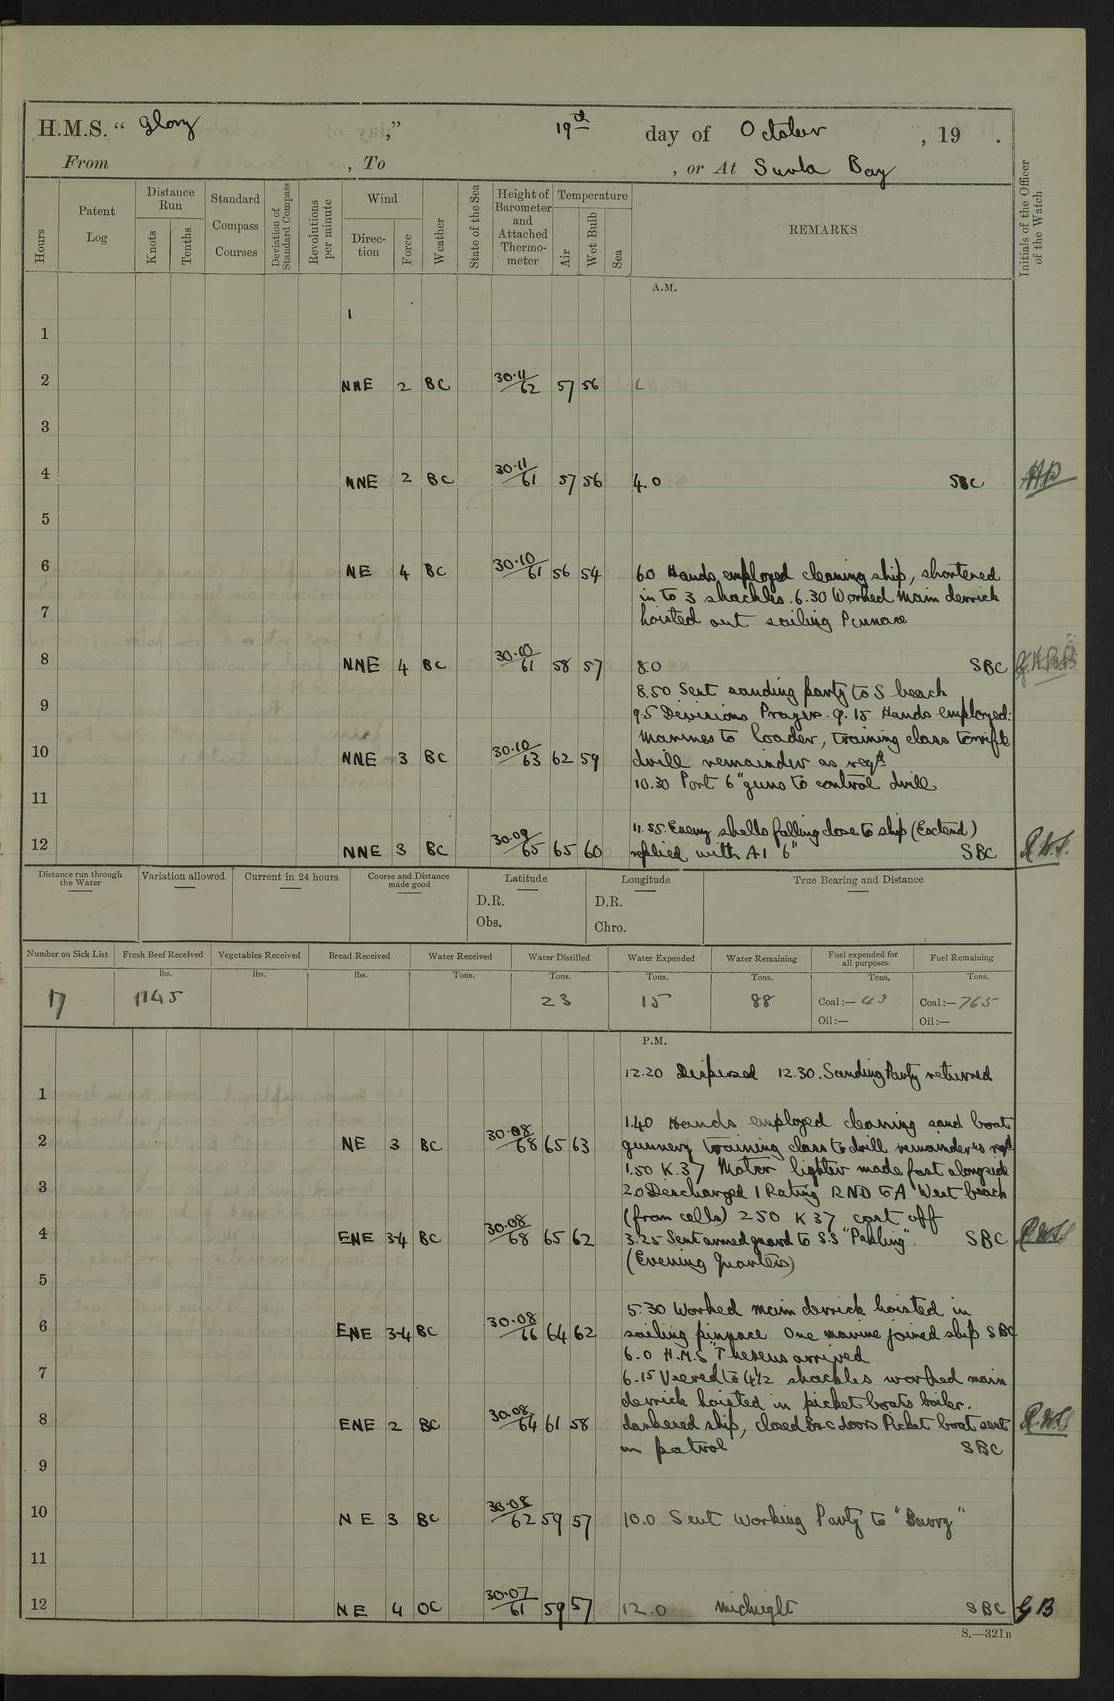 H.M.S. " Glory ," 19th day of October , 19 .
From , To , or At Suvla Bay
Hours
Patent Log
Distance Run
Knots
Tenths
Standard Compass Courses
Deviation of Standard Compass
Revolutions per minute
Wind
Direction
Force
Weather
State of the Sea
Height of Barometer and Attached Thermometer
Temperature
Air
Wet Bulb
Sea
REMARKS
Initials of the Officer of the Watch
A.M.
1
2 NNE 2 BC 30.11/62 57 56
3
4 NNE 2 BC 30.11/61 57 56 4.0 SBC
5
6 NE 4 BC 30.10/61 56 54 6.0 Hands employed cleaning ship, shortened
in to 3 shackles. 6.30 Worked main derrick
7 hoisted out sailing Pinnace
8 NNE 4 BC 30.10/61 58 57 8.0 SBC
8.50 Sent sanding party to S beach
9 9.5 Divisions Prayers. 9.15 Hands employed:
Marines to loader, training class to rifle
10 NNE 3 BC 30.10/63 62 59 drill remainder as reqd
10.30 Port 6" guns to control drill
11
11.55. Enemy shells falling close to ship (Eastend)
12 NNE 3 BC 30.09/65 65 60 replied with A1 6" SBC
Distance run through the Water
Variation allowed
Current in 24 hours
Course and Distance made good
Latitude
D.R.
Obs.
Longitude
D.R.
Chro.
True Bearing and Distance
Number on Sick List
17
Fresh Beef Received
lbs.
1145
Vegetables Received
lbs.
Bread Received
lbs.
Water Received
Tons.
Water Distilled
Tons.
23
Water Expended
Tons.
15
Water Remaining
Tons.
88
Fuel expended for all purposes
Tons.
Coal:— 43
Oil:—
Fuel Remaining
Tons.
Coal:— 765
Oil:—
P.M.
12.20 Dispersed 12.30. Sanding Party returned
1
1.40 Hands employed cleaning sand boats
2 NE 3 BC 30.08/68 65 63 gunnery training class to drill remainder as reqd
1.50 K.37 Motor lighter made fast alongside
3 2.0 Discharged 1 Rating RND to A West beach
(from cells) 2.50 K37 cast off
4 ENE 3-4 BC 30.08/68 65 62 3.25 Sent armed guard to S.S SBC
5 (Evening Quarters)
5.30 Worked main derrick hoisted in
6 ENE 3-4 BC 30.08/66 64 62 sailing pinnace One marine joined ship SBC
6.0 H.M.S "Theseus arrived
7 6.15 Veered to 4½ shackles worked main
derrick hoisted in picket boats boiler.
8 ENE 2 BC 30.08/64 61 58 darkened ship, closed B & C doors Picket boat sent
on patrol SBC
9
10 NE 3 BC 30.08/62 59 57 10.0 Sent Working Party to
11
12 NE 4 OC 30.07/61 59 57 12.0 midnight SBC GB
S.—321B